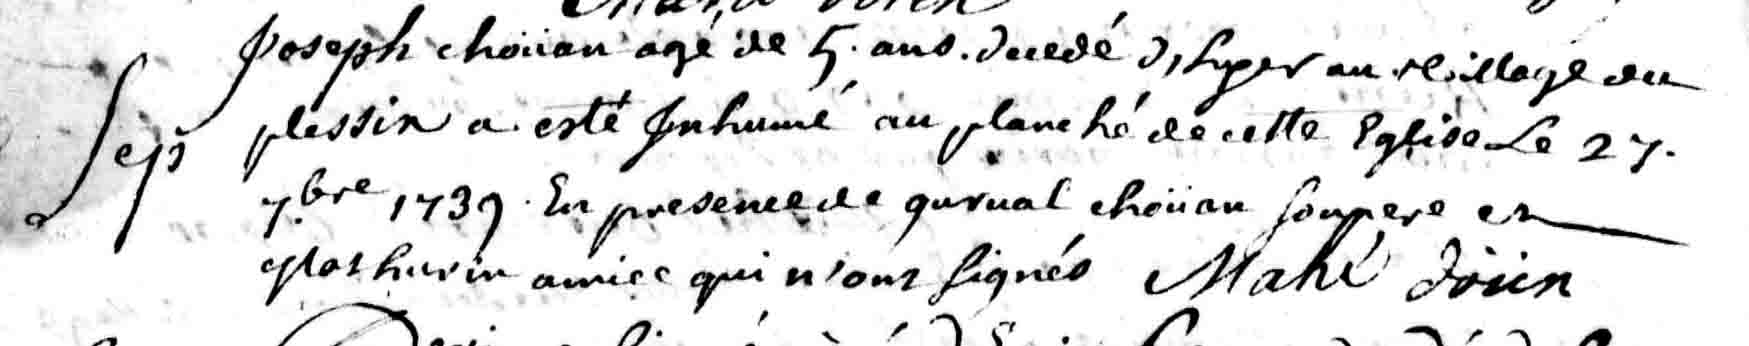 Joseph choüan agé de 5. ans. decedé d'hyer au village du
Sep plessix a esté Inhumé au planché de cette Eglise Le 27.
7.bre 1739. En presence de gurual choüan son pere et
Mathurin amice qui n'ont signés Mahé